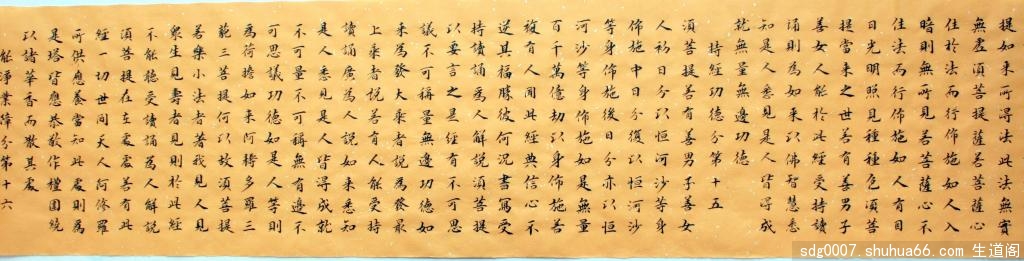 提如来所得法此法無實
無虛須菩提若菩薩心
住於法而行佈施如人入
暗則無所見若菩薩心不
住法而行佈施如人有目
日光明照見種種色須菩
提當来之世若有善男子
善女人能於此經受持讀
誦則為如来以佛智慧悉
知是人悉見是人皆得成
就無量無邊功德
持經功德分第十五
須菩提若有善男子善女
人初日分以恒河沙等身
佈施中日分復以恒河沙
等身佈施後日分亦以恒
河沙等身佈施如是無量
百千萬億劫以身佈施若
復有人聞此經典信心不
逆其福勝彼何況書寫受
持讀誦為人解說須菩提
以要言之是經有不可思
議不可稱量無邊功德如
来為發大乘者說為發最
上乘者說若有人能受持
讀誦廣為人說如来悉知
是人悉見是人皆得成就
不可量不可稱無有邊不
可思議功德如是人等則
為荷担如来阿耨多羅三
藐三菩提何以故須菩提
若樂小法者著我見人見
眾生見壽者見則於此經
不能聽受讀誦為人解說
須菩提在在處處若有此
經一切世間天人阿修羅
所供應養當知此處則為
是塔皆應恭敬作禮圍繞
以諸華香而散其處
能淨業障分第十六
sdg0007.shuhua66.com 生道阁